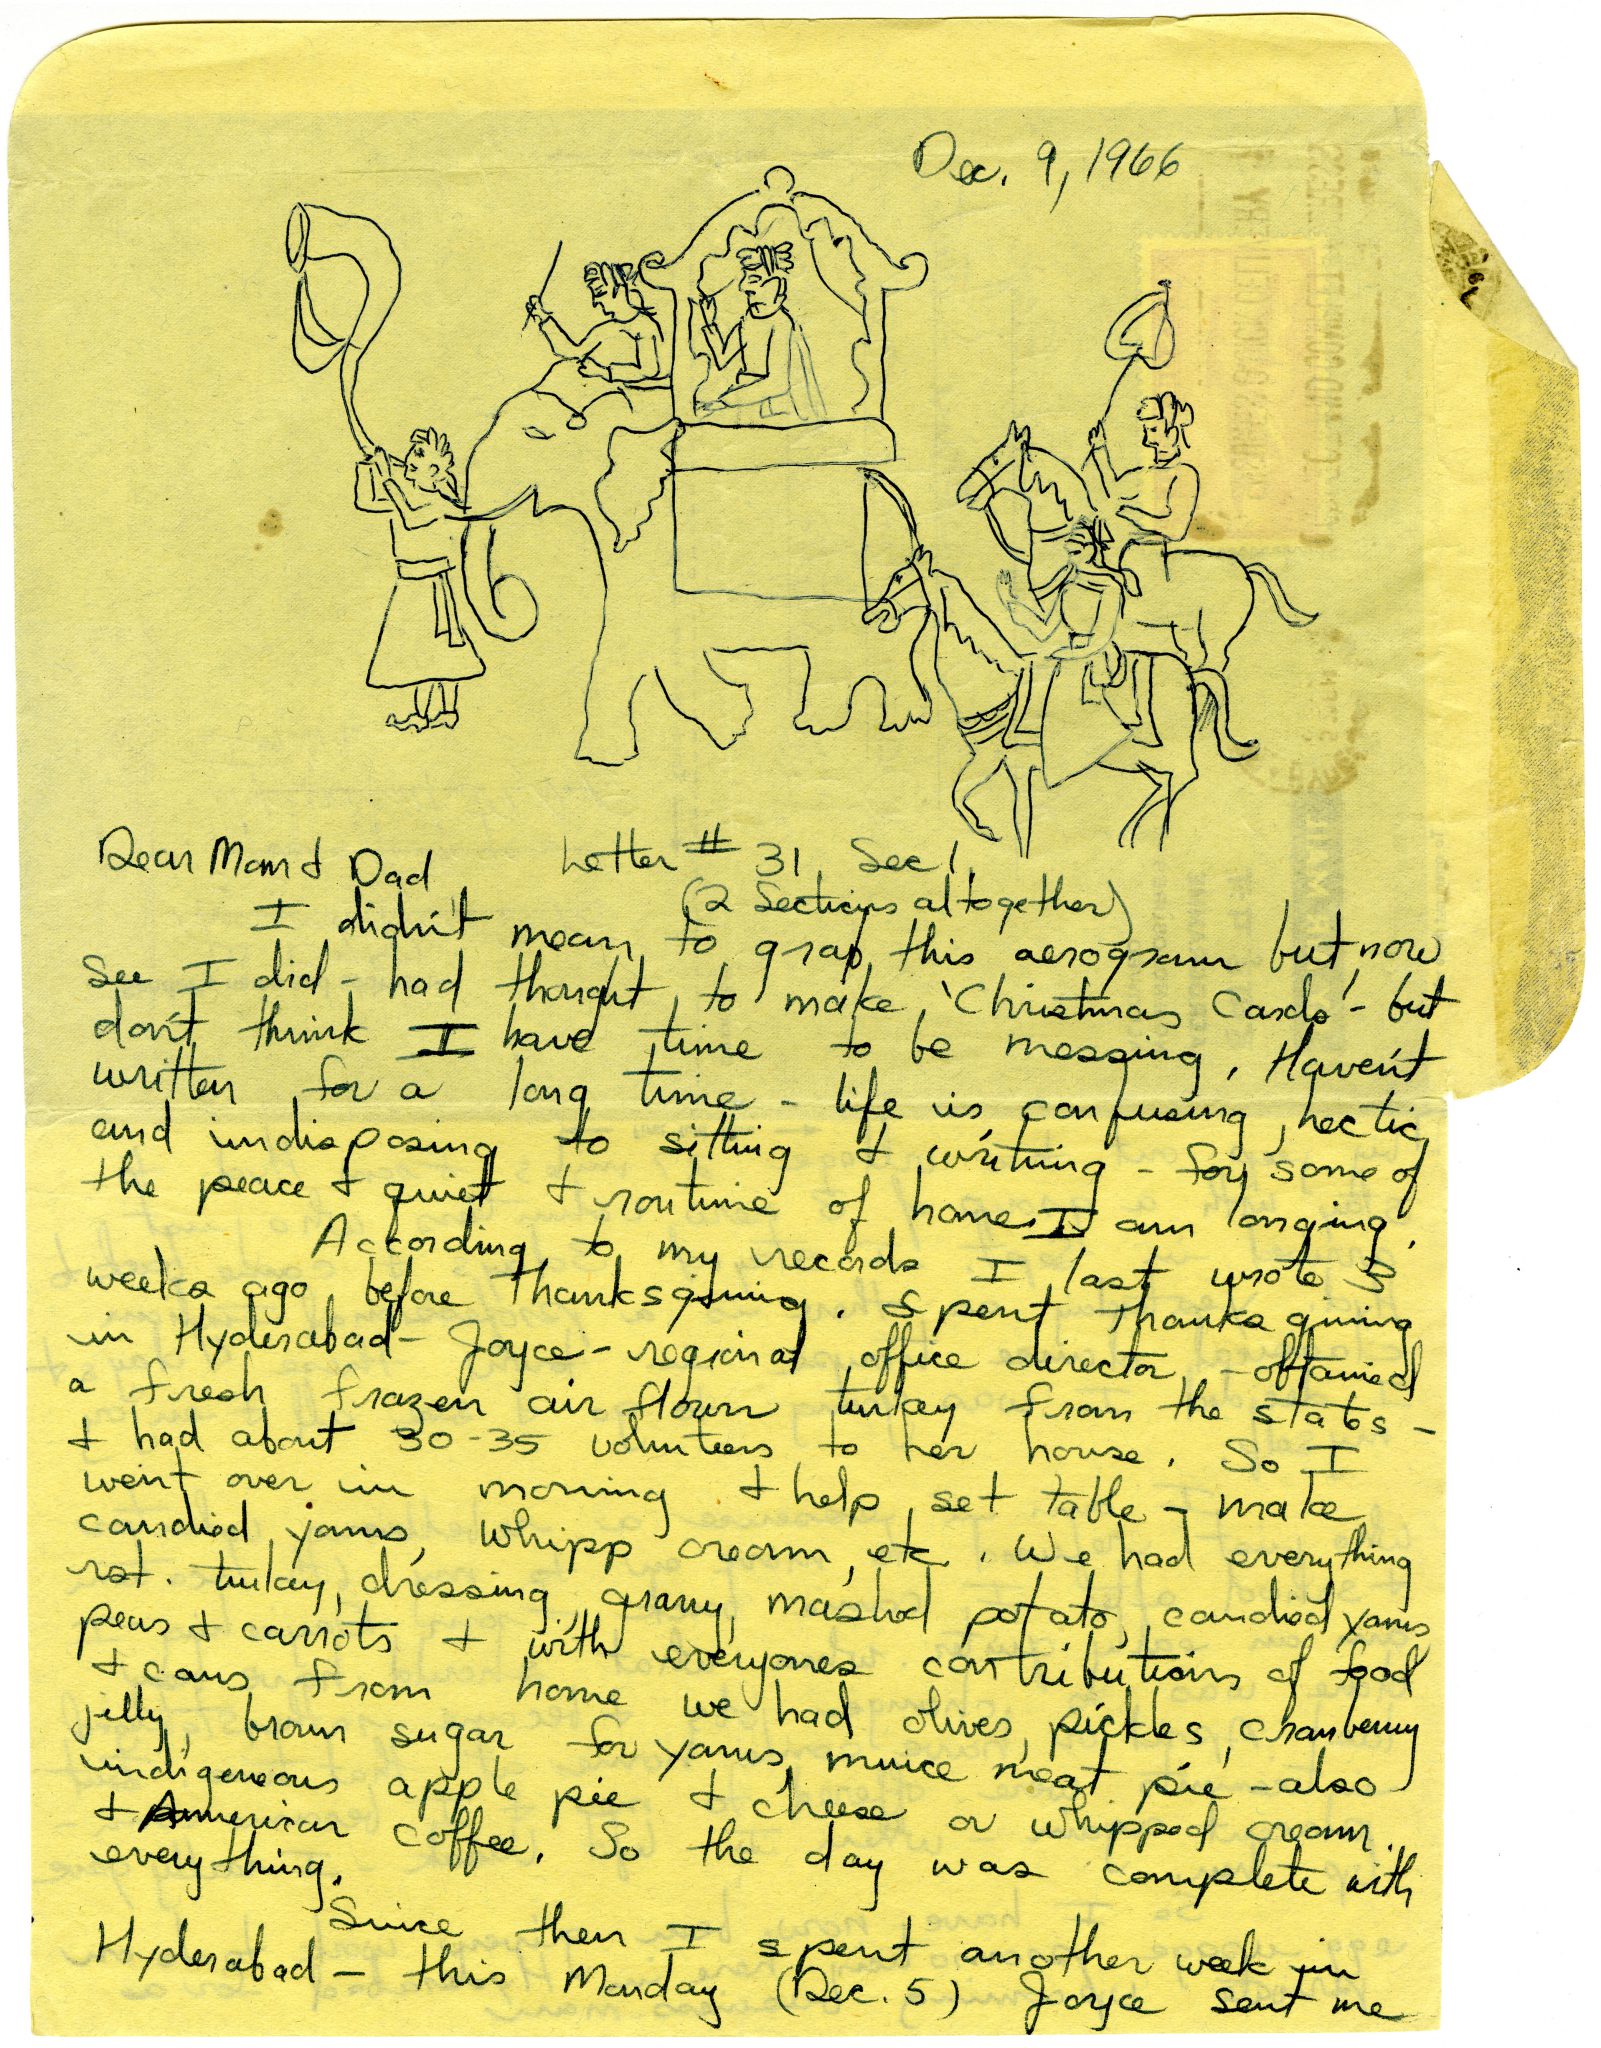 Dec. 9, 1966
Dear Mom & Dad Letter # 31 Sec 1.
(2 Sections altogether)
I didn't mean to grab this aerogram but now
see I did - had thought to make 'Christmas Cards' - but
don't think I have time to be messing. Haven't
written for a long time - life is confusing, hectic,
and indisposing to sitting & writing - for some of
the peace & quiet & routine of home I am longing.
According to my records I last wrote 3
weeks ago before Thanksgiving. Spent Thanksgiving
in Hyderabad - Joyce - regional office director - obtained
a fresh frozen air flown turkey from the states -
& had about 30-35 volunteers to her house. So I
went over in morning & help set table - make
candied yams, whipp cream, etc. We had everything
rst. turkey, dressing, gravy, mashed potato, candied yams
peas & carrots & with everyones contributions of food
& cans from home we had olives, pickles, cranberry
jelly, brown sugar for yams, mince meat pie - also
indigeneous apple pie & cheese or whipped cream.
& American coffee. So the day was complete with
everything.
Since then I spent another week in
Hyderabad - this Monday (Dec. 5) Joyce sent me